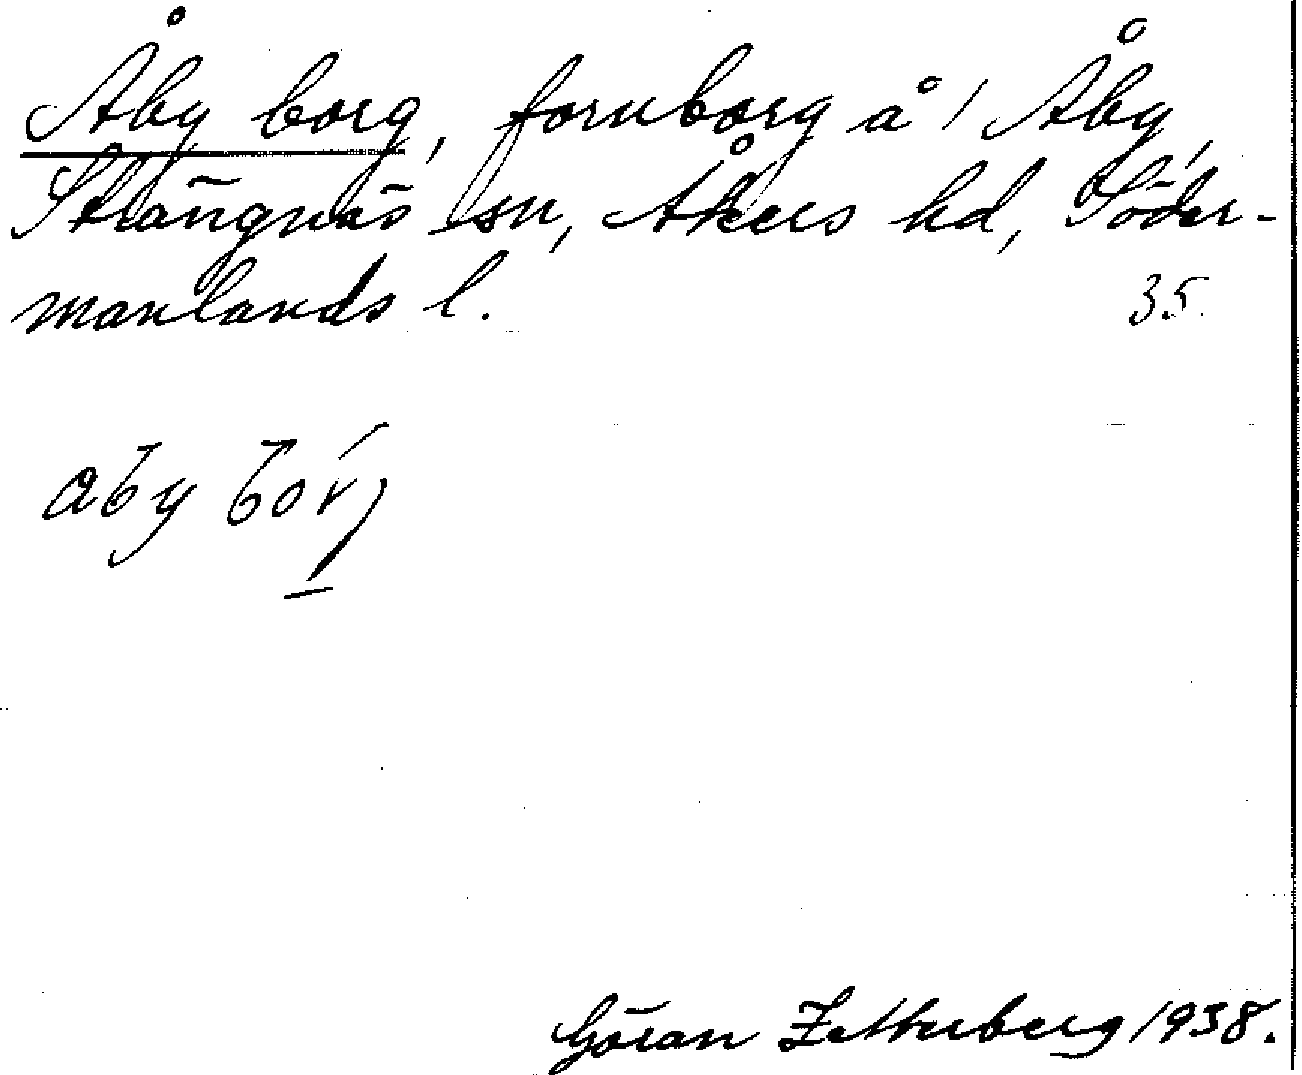 Åby borg, fornborg å 1 Åby,
Strängnäs sn, Åkers hd, Söder-
manlands l.
35.
åby bórj
Göran Zetterberg 1938.